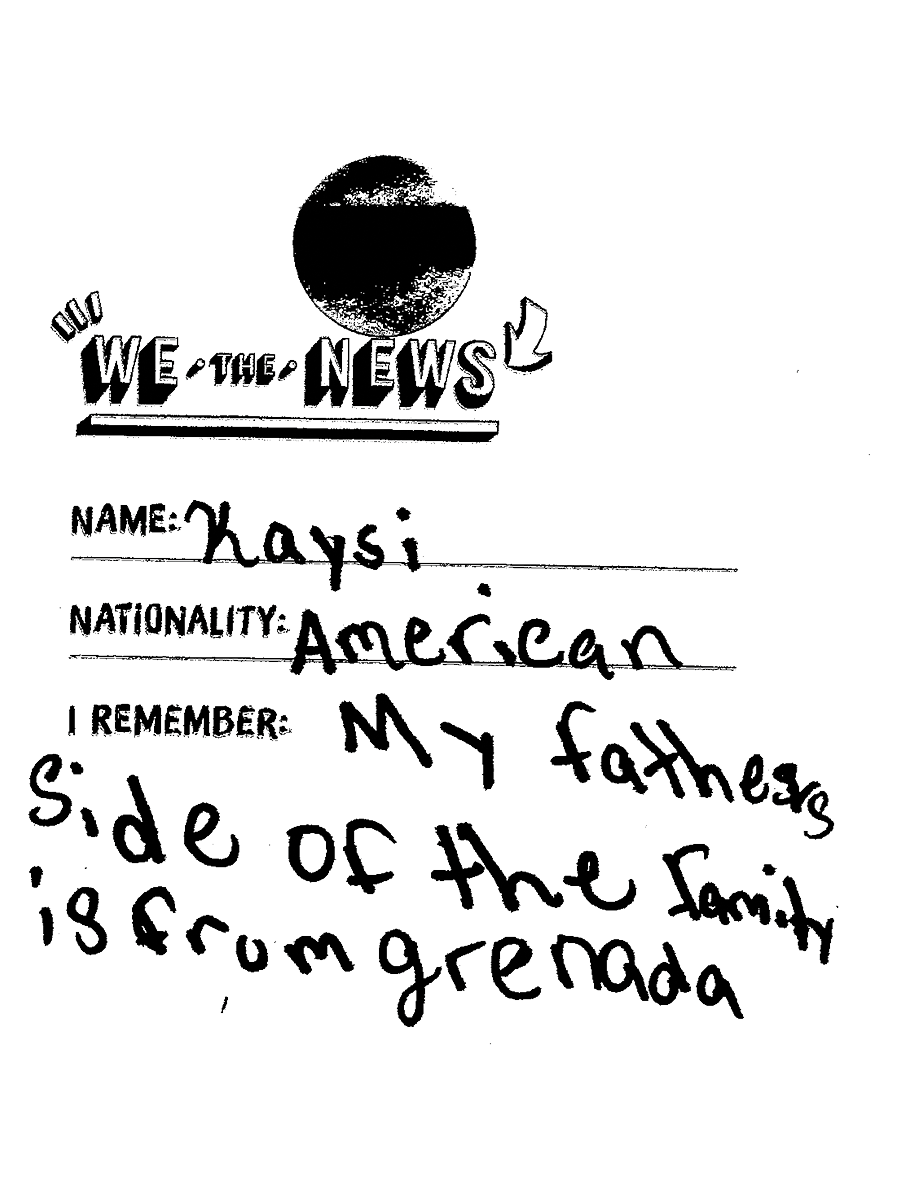 WE THE NEWS
NAME: Kaysi
NATIONALITY: American
I REMEMBER: My fathers
side of the family
is from grenada